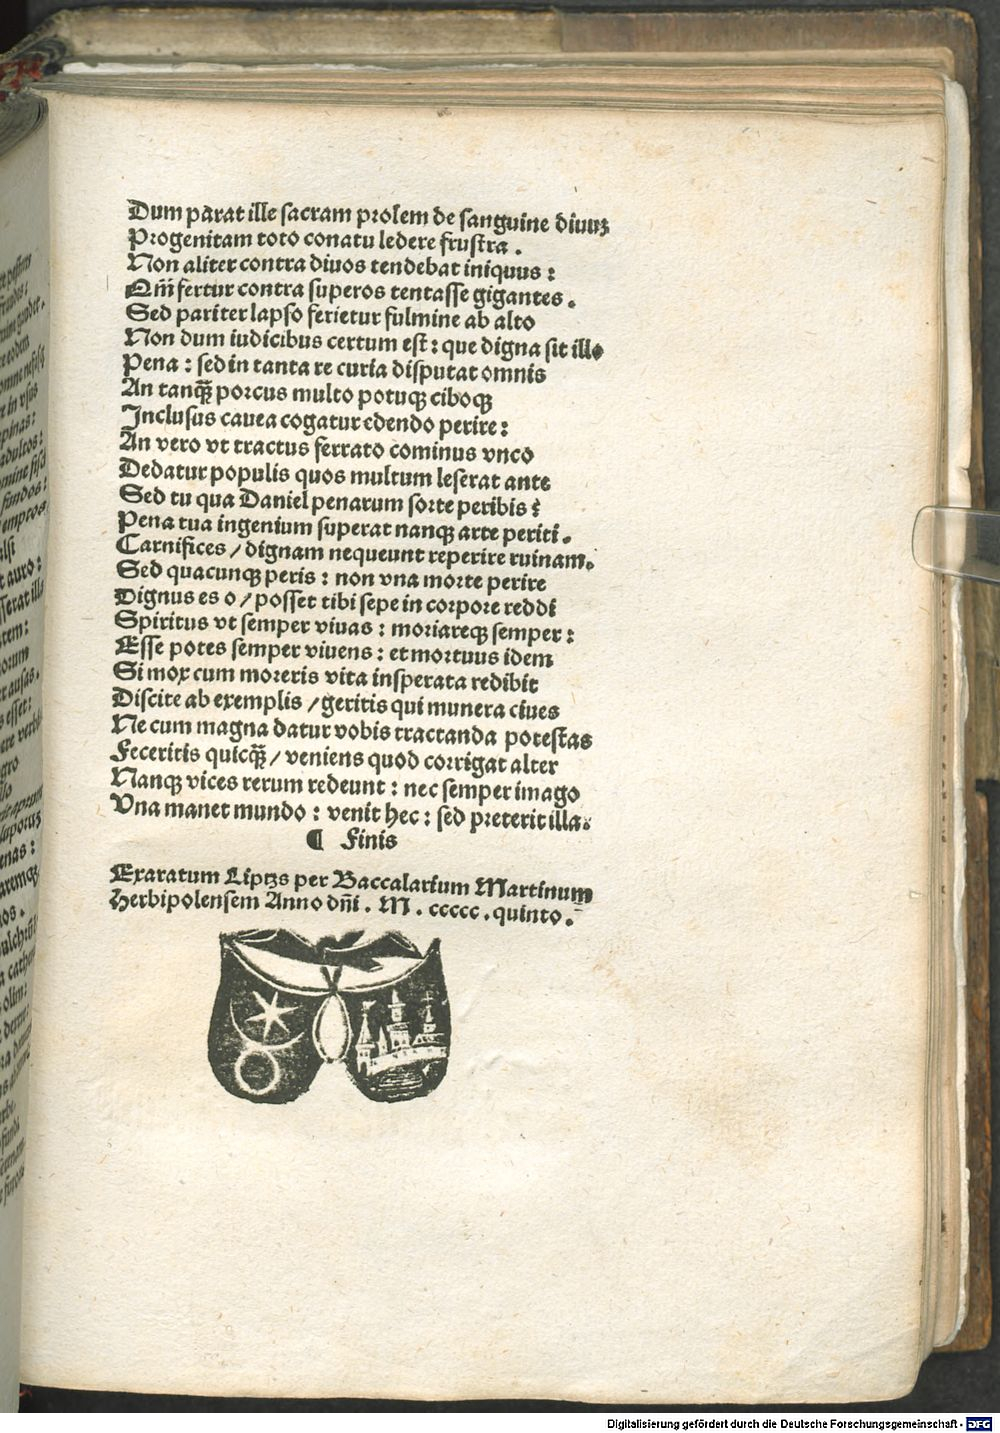 Dum parat ille sacram prolem de sanguine diuuꝫ
Progenitam toto conatu ledere frustra.
Non aliter contra diuos tendebat iniquus:
Qm̄ fertur contra superos tentasse gigantes.
Sed pariter lapso ferietur fulmine ab alto
Non dum iudicibus certum est: que digna sit ille
Pena: sed in tanta re curia disputat omnis
An tanqꝫ̄ porcus multo potuqꝫ ciboqꝫ
Inclusus cauea cogatur edendo perire:
An vero vt tractus ferrato cominus vnco
Dedatur populis quos multum leserat ante
Sed tu qua Daniel penarum sorte peribis?
Pena tua ingenium superat nanqꝫ arte periti.
Carnifices / dignam nequeunt reperire ruinam.
Sed quacunqꝫ peris: non vna morte perire
Dignus es o / posset tibi sepe in corpore reddi
Spiritus vt semper viuas: moriareqꝫ semper:
Esse potes semper viuens: et mortuus idem
Si mox cum moreris vita insperata redibit
Discite ab exemplis / geritis qui munera ciues
Ne cum magna datur vobis tractanda potestas
Feceritis quicqꝫ̄ / veniens quod corrigat alter
Nanqꝫ vices rerum redeunt: nec semper imago
Una manet mundo: venit hec: sed preterit illa.
¶ Finis
Exaratum Liptzs per Baccalarium Martinum
Herbipolensem Anno dn̄i. M. ccccc. quinto.
Digitalisierung gefördert durch die Deutsche Forschungsgemeinschaft - DFG